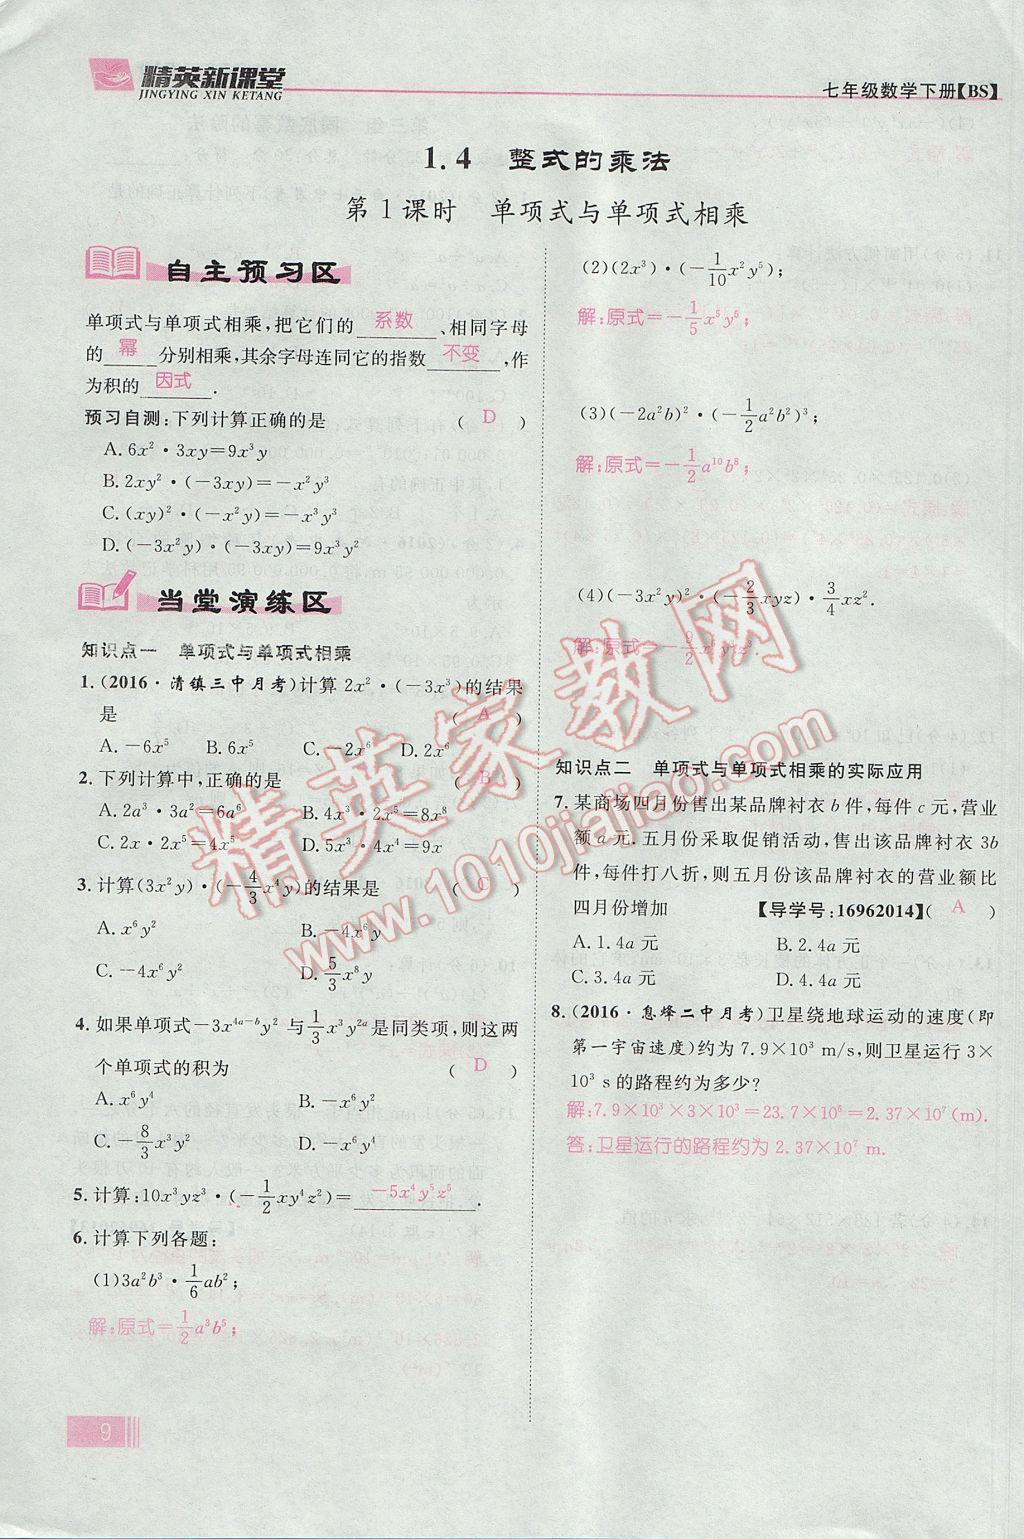 精英新课堂
JINGYING XIN KETANG
七年级数学下册【BS】
1.4 整式的乘法
第1课时 单项式与单项式相乘
自主预习区
单项式与单项式相乘,把它们的 系数 、相同字母
的 幂 分别相乘,其余字母连同它的指数 不变 ,作
为积的 因式 .
预习自测:下列计算正确的是 ( D )
A. 6x²·3xy=9x³y
B. 2xy²·(-3xy)=-x²y³
C. (xy)²·(-x²y)=-x³y³
D. (-3x²y)·(-3xy)=9x³y²
当堂演练区
知识点一 单项式与单项式相乘
1. (2016·清镇三中月考)计算 2x²·(-3x³)的结果
是 ( A )
A. -6x⁵ B. 6x⁵ C. -2x⁶ D. 2x⁶
2. 下列计算中,正确的是 ( B )
A. 2a³·3a²=6a⁶ B. 4x³·2x⁵=8x⁸
C. 2x·2x⁵=4x⁵ D. 5x³·4x⁴=9x
3. 计算(3x²y)·(-4/3x⁴y)的结果是 ( C )
A. x⁶y² B. -x⁶y
C. -4x⁶y² D. 5/3x⁸y
4. 如果单项式-3x⁴ᵃ⁻ᵇy²与1/3x³y²ᵃ是同类项,则这两
个单项式的积为 ( D )
A. x⁶y⁴ B. -x³y²
C. -8/3x³y² D. -x⁶y⁴
5. 计算:10x³yz³·(-1/2xy⁴z²)= -5x⁴y⁵z⁵ .
6. 计算下列各题:
(1)3a²b³·1/6ab²;
解:原式=1/2a³b⁵;
9
(2)(2x³)·(-1/10x²y⁵);
解:原式=-1/5x⁵y⁵;
(3)(-2a²b)²·(-1/2a²b²)³;
解:原式=-1/2a¹⁰b⁸;
(4)(-3x²y)²·(-2/3xyz)·3/4xz².
解:原式=-9/2x⁶y³z³.
知识点二 单项式与单项式相乘的实际应用
7. 某商场四月份售出某品牌衬衣 b 件,每件 c 元,营业
额 a 元. 五月份采取促销活动,售出该品牌衬衣 3b
件,每件打八折,则五月份该品牌衬衣的营业额比
四月份增加 【导学号:16962014】( A )
A. 1.4a 元 B. 2.4a 元
C. 3.4a 元 D. 4.4a 元
8. (2016·息烽二中月考)卫星绕地球运动的速度(即
第一宇宙速度)约为 7.9×10³ m/s,则卫星运行 3×
10³ s 的路程约为多少?
解:7.9×10³×3×10³=23.7×10⁶=2.37×10⁷(m).
答:卫星运行的路程约为 2.37×10⁷ m.
精英家教网
www.1010jiajiao.com